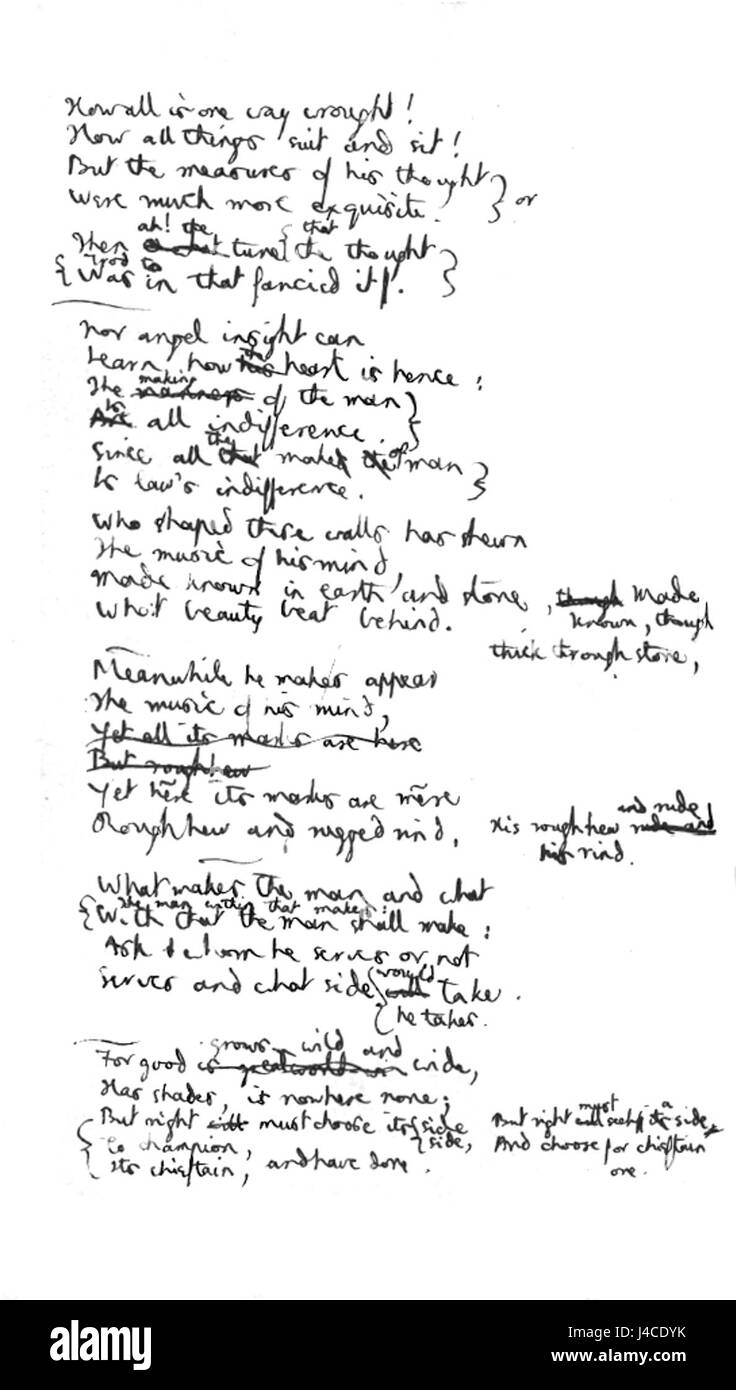 How all is one way wrought!
How all things suit and sit!
But the measures of his thought
Were much more exquisite. } or
ah! the { that
Then tune the thought
{ Good to
{ Was in that fancied it. }
Nor angel insight can
the
Learn how his heart is hence:
making
The manners of the man }
Is
Are all indifference. }
the of
Since all that makes the man }
Is law's indifference. }
Who shaped these walls has shewn
The music of his mind,
Made known in earth and stone, though Made
What beauty beat behind. known, though
thick through stone,
Meanwhile he makes appear
The music of his mind,
Yet all its marks are here
But roughhew
Yet here its marks are mere
and rude
Roughhew and rugged rind, His roughhew rude and
his rind.
What makes the man and what
The man within that makes:
{ With that the man shall make:
Ask whom he serves or not
would
Serves and what side { will take.
{ he takes.
grows wild and
For good is great world wide,
Has shades, is nowhere none;
must a
But right will must choose its side But right will seek its side,
{ To champion, { side, And choose for chieftain
{ Its chieftain, and have done. one.
alamy stock photo
J4CDYK
www.alamy.com